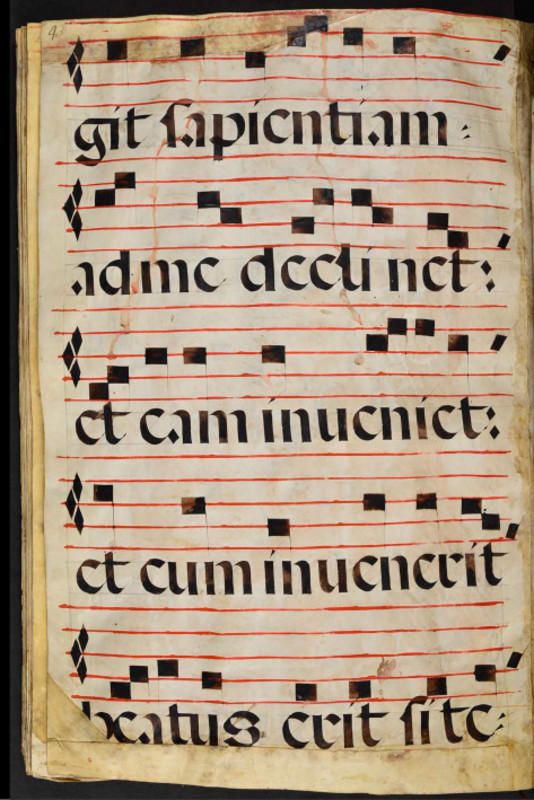 4.
git sapientiam:
ad me declinet:
et eam inueniet:
et cum inuenerit
beatus erit si te: